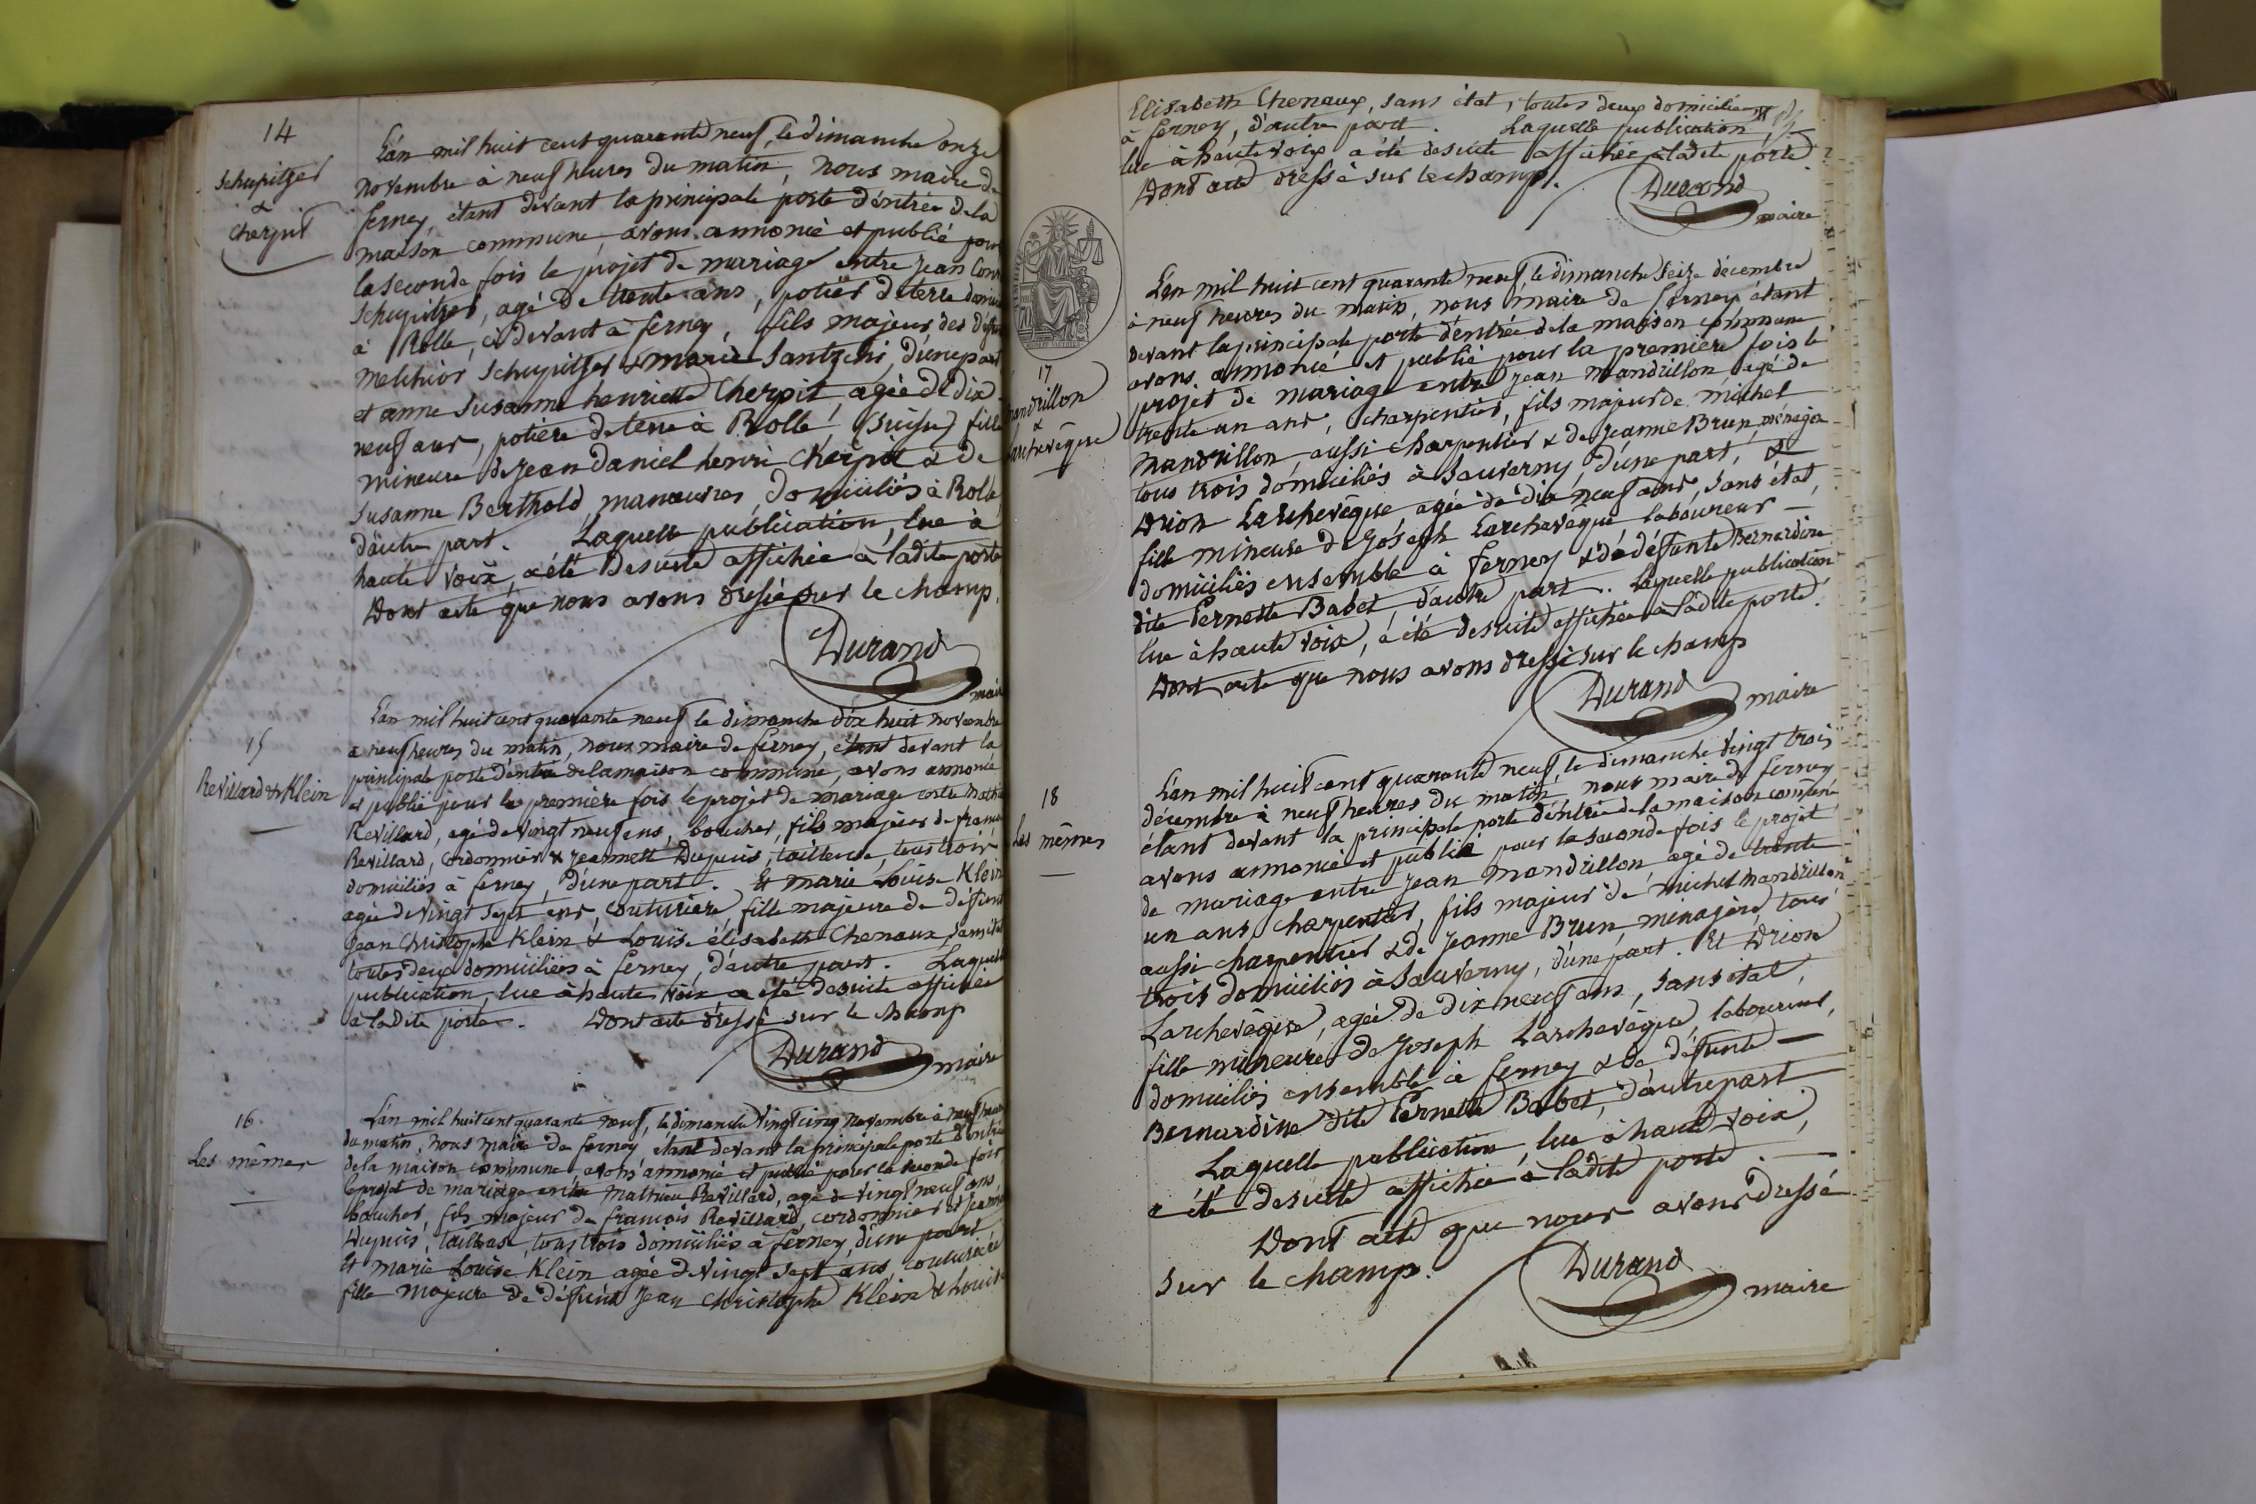 14
Schupitzer
&
Cherpit
L'an mil huit cent quarante neuf, le dimanche onze
novembre à neuf heures du matin, nous maire de
ferney, étant devant la principale porte d'entrée de la
maison commune, avons annoncé et publié pour
la seconde fois le projet de mariage entre Jean
Schupitzer, agé de trente ans, potier de terre
à Rolle, ci devant à ferney, fils majeur des
Melchior Schupitzer & marie Santzchi, d'une part
et anne Susanne henriette Cherpit, agée de dix
neuf ans, potière de terre à Rolle, (Suisse) fille
mineure de Jean Daniel henri Cherpit & de
Susanne Berthold, manœuvres, domiciliés à Rolle,
d'autre part. Laquelle publication, lue à
haute voix, a été desuite affichée à ladite porte
Dont acte que nous avons dressé sur le champ.
Durand
maire
15
Revillard & Klein
L'an mil huit cent quarante neuf le dimanche dix huit novembre
à neuf heures du matin, nous maire de ferney, étant devant la
principale porte d'entrée de la maison commune, avons annoncé
et publié pour la première fois le projet de mariage entre
Revillard, agé de vingt neuf ans, boucher, fils majeur de
Revillard, cordonnier & Jeannette Dupuis, tailleuse, tous trois
domiciliés à ferney, d'une part. Et marie Louise Klein
agée de vingt sept ans, couturière, fille majeure de défunt
Jean Christophe Klein & Louise élisabeth Chenaux, sans état
toutes deux domiciliées à ferney, d'autre part. Laquelle
publication, lue à haute voix a été desuite affichée
à ladite porte. Dont acte dressé sur le champ
Durand
maire
16
Les mêmes
L'an mil huit cent quarante neuf, le dimanche vingt cinq novembre à neuf heures
du matin, nous maire de ferney, étant devant la principale porte d'entrée
de la maison commune avons annoncé et publié pour la seconde fois
le projet de mariage entre Mathieu Revillard, agé de vingt neuf ans,
boucher, fils majeur de françois Revillard, cordonnier et
Dupuis, tailleuse, tous trois domiciliés à ferney, d'une part
Et marie Louise Klein agée de vingt sept ans, couturière
fille majeure de défunt Jean Christophe Klein & Louise
Elisabeth Chenaux, sans état, toutes deux domiciliées
à ferney, d'autre part. Laquelle publication,
lue à haute voix a été desuite affichée à ladite porte
Dont acte dressé sur le champ.
Durand
maire
17
Mandrillon
&
Larchevêque
L'an mil huit cent quarante neuf, le dimanche seize décembre
à neuf heures du matin, nous maire de ferney étant
devant la principale porte d'entrée de la maison commune
avons annoncé et publié pour la première fois le
projet de mariage entre Jean Mandrillon agé de
trente un ans, charpentier, fils majeur de michel
Mandrillon aussi charpentier & de Jeanne Brun, ménagère
tous trois domiciliés à Sauverny, d'une part, &
Drion Larchevêque, agée de dix neuf ans, sans état,
fille mineure de Joseph Larchevêque laboureur
domiciliés ensemble à ferney & de défunte Bernardine
dite Pernette Babet, d'autre part. Laquelle publication
lue à haute voix, a été desuite affichée à ladite porte.
Dont acte que nous avons dressé sur le champ
Durand
maire
18
Les mêmes
L'an mil huit cent quarante neuf, le dimanche vingt trois
décembre à neuf heures du matin, nous maire de ferney
étant devant la principale porte d'entrée de la maison commune
avons annoncé et publié pour la seconde fois le projet
de mariage entre Jean Mandrillon agé de trente
un ans, charpentier, fils majeur de michel Mandrillon
aussi charpentier & de Jeanne Brun, ménagère, tous
trois domiciliés à Sauverny, d'une part. Et Drion
Larchevêque, agée de dix neuf ans, sans état,
fille mineure de Joseph Larchevêque, laboureur,
domiciliés ensemble à ferney & de défunte
Bernardine dite Pernette Babet, d'autre part
Laquelle publication, lue à haute voix,
a été desuite affichée à ladite porte.
Dont acte que nous avons dressé
sur le champ.
Durand
maire